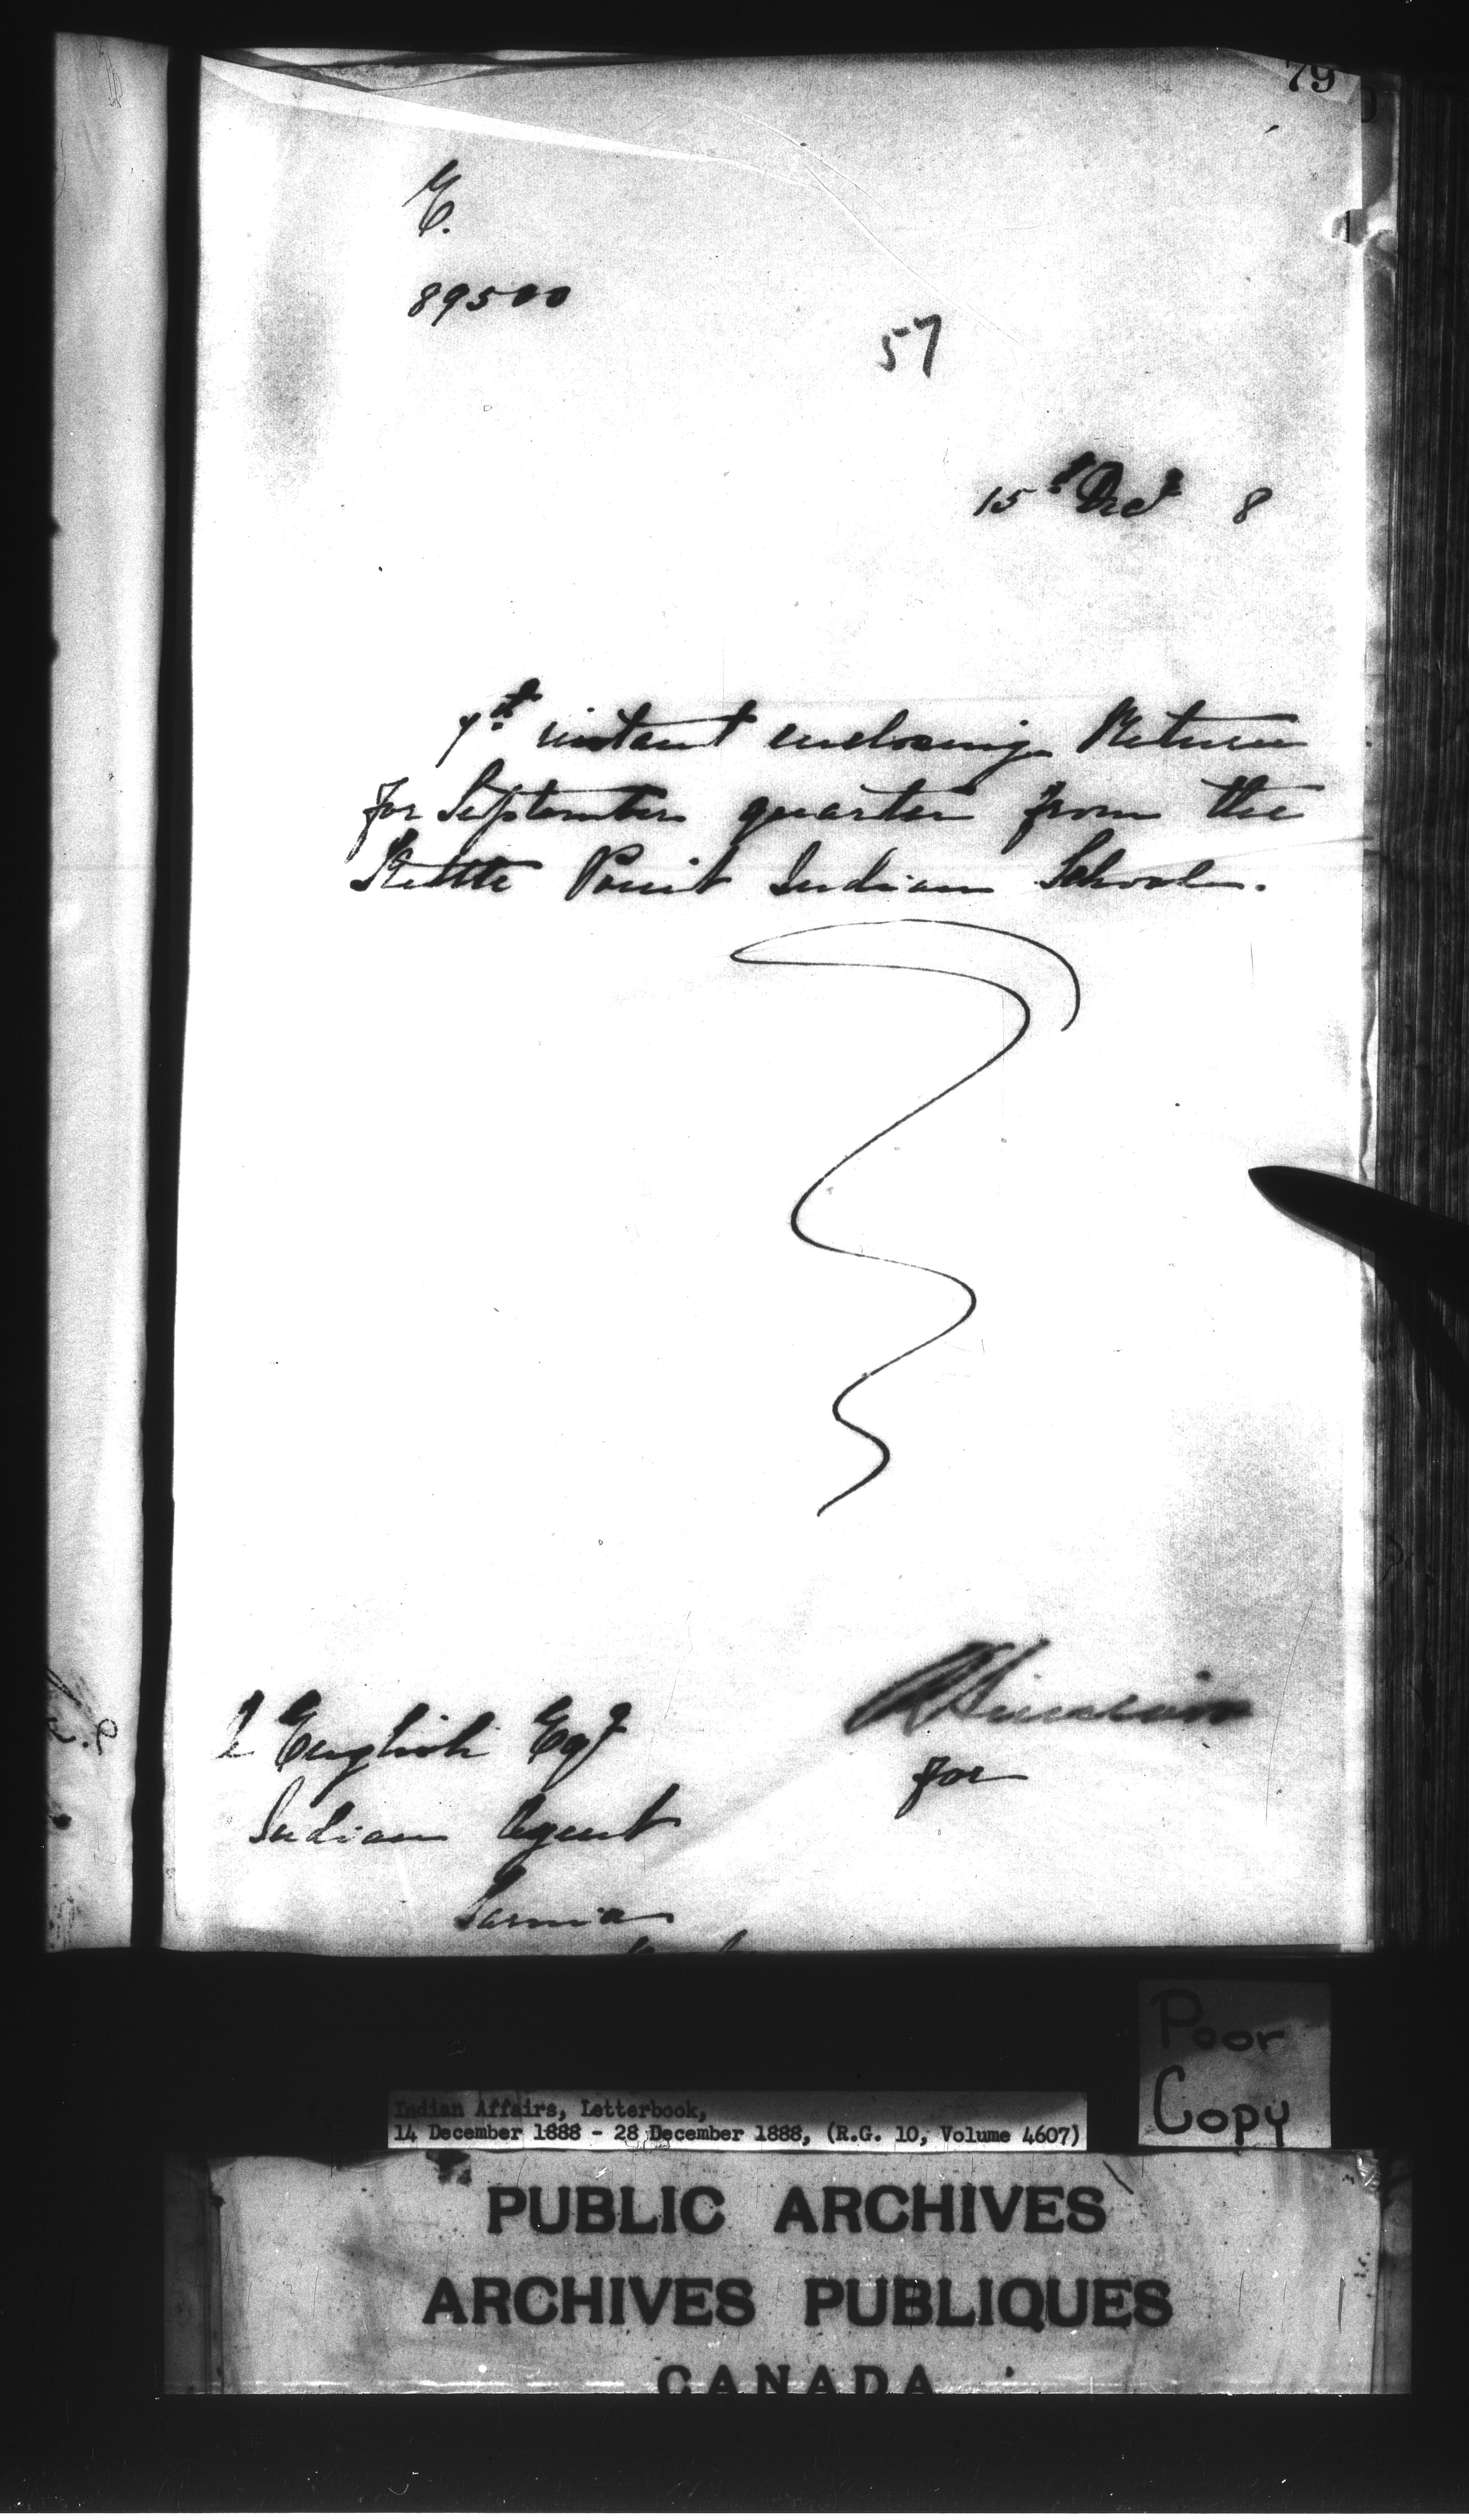 79
E.
89500
57
15th Decr 8
7th instant enclosing Return
for September quarter from the
Kettle Point Indian School.
English Esqr
for
Indian Agent
Sarnia
Poor
Copy
Indian Affairs, Letterbook,
14 December 1888 - 28 December 1888, (R.G. 10, Volume 4607)
PUBLIC ARCHIVES
ARCHIVES PUBLIQUES
CANADA